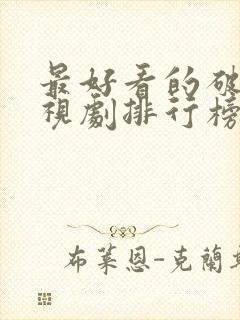 最好看的破
視劇排行榜
布萊恩-克蘭